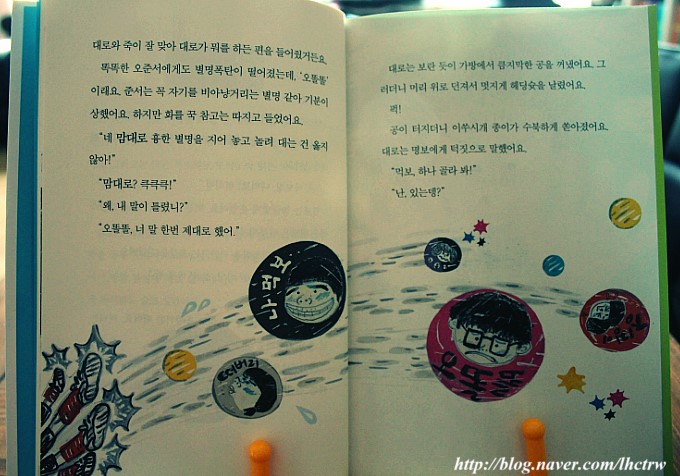 대로와 죽이 잘 맞아 대로가 뭐를 하든 편을 들어줬거든요.
똑똑한 오준서에게도 별명폭탄이 떨어졌는데, '오똘똘'
이래요. 준서는 꼭 자기를 비아냥거리는 별명 같아 기분이
상했어요. 하지만 화를 꾹 참고는 따지고 들었어요.
"네 맘대로 흉한 별명을 지어 놓고 놀려 대는 건 옳지
않아!"
"맘대로? 킥킥킥!"
"왜, 내 말이 틀렸니?"
"오똘똘, 너 말 한번 제대로 했어."
나먹보
대로는 보란 듯이 가방에서 큼지막한 공을 꺼냈어요. 그
러더니 머리 위로 던져서 멋지게 헤딩슛을 날렸어요.
퍽!
공이 터지더니 이쑤시개 종이가 수북하게 쏟아졌어요.
대로는 명보에게 턱짓으로 말했어요.
"먹보, 하나 골라 봐!"
"난, 있는뎅?"
http://blog.naver.com/lhctrw